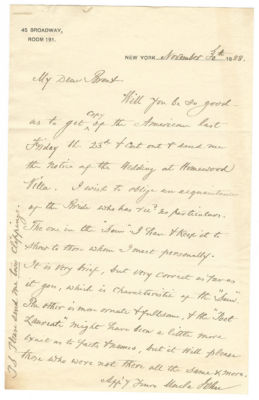 45 BROADWAY,
ROOM 191.
NEW YORK November 30th 1888.
My Dear Brent
Will you be so good
as to get copy of the American last
Friday the 23d & cut out & send me
the Notice of the Wedding at Homewood
Villa. I wish to oblige an acquaintance
of the Bride who has rec'd no particulars.
The one in the "Sun" I have & keep it to
show to those whom I meet personally.
It is very brief, but very correct as far as
it goes, which is characteristic of the "Sun".
The other is more ornate & fullsome, & the "Poet
Laureat" might have been a little more
exact as to facts & names, but it will please
those who were not there all the same & more.
Aff'y Yours Uncle
P.S. Please send me two clippings.